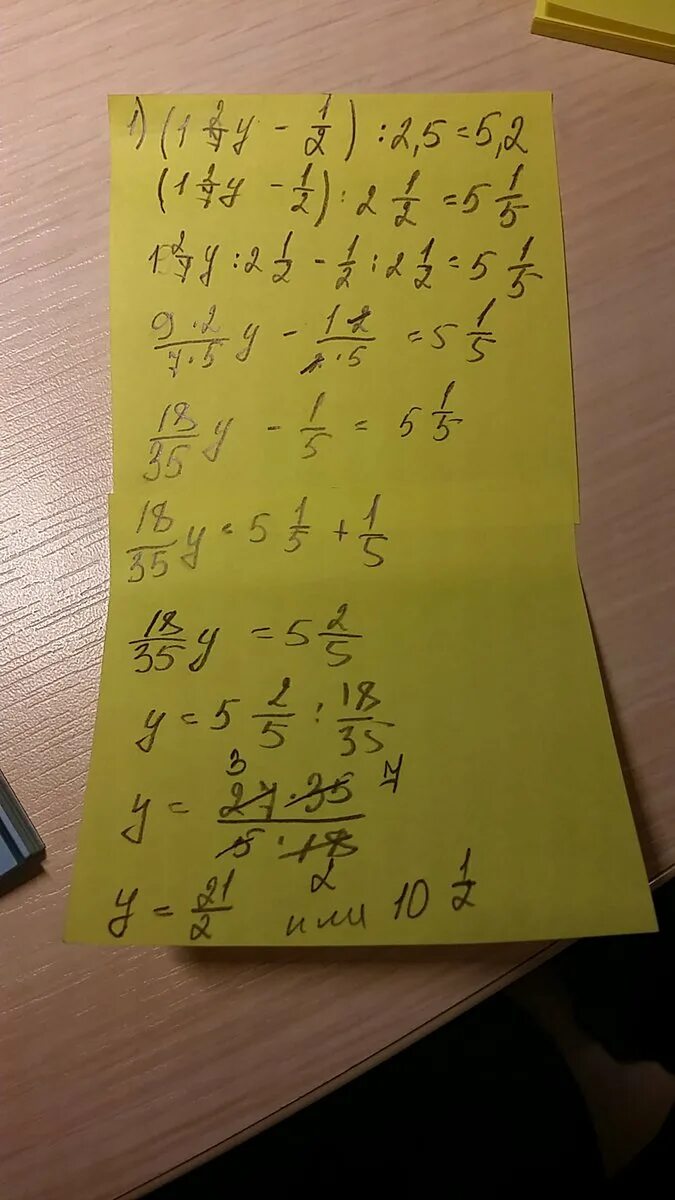 1) (1 2/7 y - 1/2) : 2,5 = 5,2
(1 2/7 y - 1/2) : 2 1/2 = 5 1/5
1 2/7 y : 2 1/2 - 1/2 : 2 1/2 = 5 1/5
9·2/7·5 y - 1·2/2·5 = 5 1/5
18/35 y - 1/5 = 5 1/5
18/35 y = 5 1/5 + 1/5
18/35 y = 5 2/5
y = 5 2/5 : 18/35
3 7
y = 27·35/5·18
2
y = 21/2 или 10 1/2